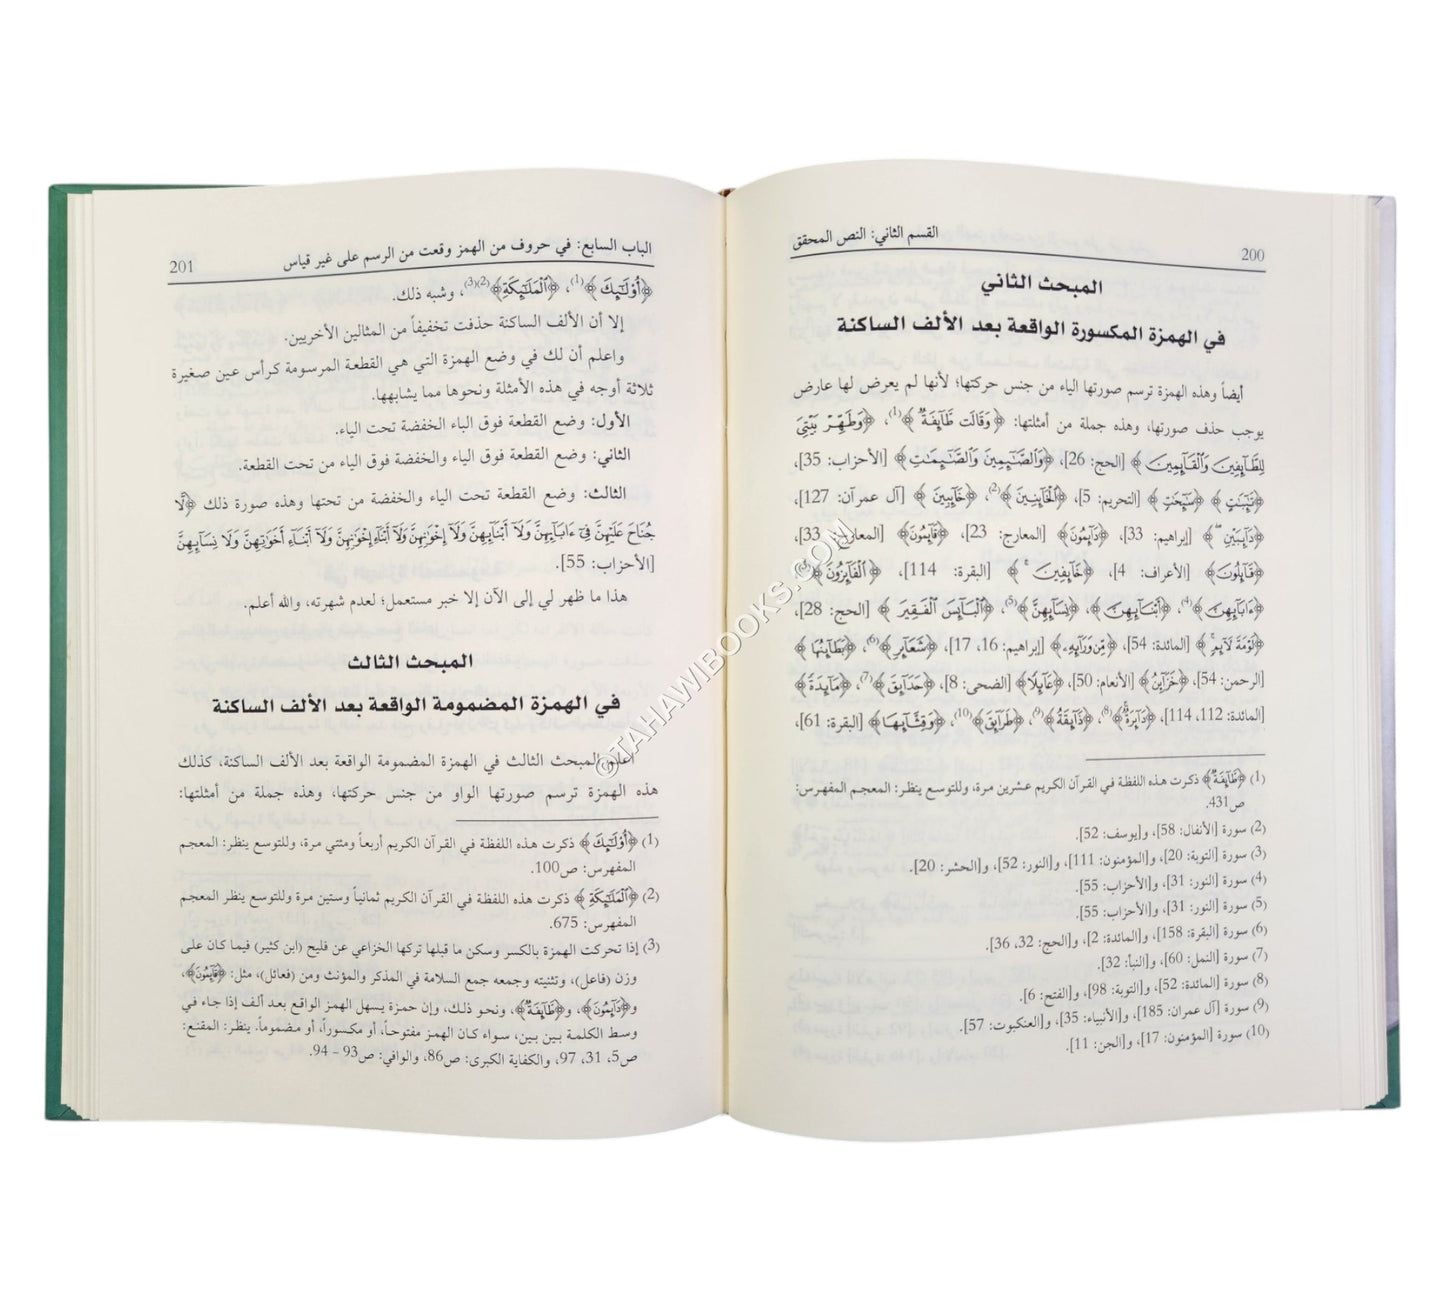 200
القسم الثاني: النص المحقق
المبحث الثاني
في الهمزة المكسورة الواقعة بعد الألف الساكنة
أيضاً وهذه الهمزة ترسم صورتها الياء من جنس حركتها؛ لأنها لم يعرض لها عارض
يوجب حذف صورتها، وهذه جملة من أمثلتها: ﴿وَقَالَت طَّآئِفَةٌ﴾(1)، ﴿وَطَهِّرْ بَيْتِيَ
لِلطَّآئِفِينَ وَٱلْقَآئِمِينَ﴾ [الحج: 26]، ﴿وَٱلصَّٰٓئِمِينَ وَٱلصَّٰٓئِمَٰتِ﴾ [الأحزاب: 35]،
﴿تَٰٓئِبَٰتٍ﴾ ﴿سَٰٓئِحَٰتٍ﴾ [التحريم: 5]، ﴿ٱلْخَآئِنِينَ﴾(2)، ﴿خَآئِبِينَ﴾ [آل عمرآن: 127]،
﴿دَآئِبَيْنِ﴾ [إبراهيم: 33]، ﴿دَآئِمُونَ﴾ [المعارج: 23]، ﴿قَآئِمُونَ﴾ [المعارج: 33]،
﴿قَآئِلُونَ﴾ [الأعراف: 4]، ﴿خَآئِفِينَ﴾ [البقرة: 114]، ﴿ٱلْفَآئِزُونَ﴾(3)
﴿ءَابَآئِهِنَّ﴾(4)، ﴿أَبْنَآئِهِنَّ﴾، ﴿نِسَآئِهِنَّ﴾(5)، ﴿ٱلْبَآئِسَ ٱلْفَقِيرَ﴾ [الحج: 28]،
﴿لَوْمَةَ لَآئِمٍ﴾ [المائدة: 54]، ﴿مِّن وَرَآئِهِ﴾ [إبراهيم: 16، 17]، ﴿شَعَآئِرِ﴾(6)، ﴿بَطَآئِنُهَا﴾
[الرحمن: 54]، ﴿خَزَآئِنُ﴾ [الأنعام: 50]، ﴿عَآئِلًا﴾ [الضحى: 8]، ﴿حَدَآئِقَ﴾(7)، ﴿مَآئِدَةً﴾
[المائدة: 112، 114]، ﴿دَآئِرَةٌ﴾(8)، ﴿ذَآئِقَةُ﴾(9)، ﴿طَرَآئِقَ﴾(10)، ﴿وَقِثَّآئِهَا﴾ [البقرة: 61]،
(1) ﴿طَّآئِفَةٌ﴾ ذكرت هذه اللفظة في القرآن الكريم عشرين مرة، وللتوسع ينظر: المعجم المفهرس:
ص431.
(2) سورة [الأنفال: 58]، و[يوسف: 52].
(3) سورة [التوبة: 20]، و[المؤمنون: 111]، و[النور: 52]، و[الحشر: 20].
(4) سورة [النور: 31]، و[الأحزاب: 55].
(5) سورة [النور: 31]، و[الأحزاب: 55].
(6) سورة [البقرة: 158]، و[المائدة: 2]، و[الحج: 32، 36].
(7) سورة [النمل: 60]، و[النبأ: 32].
(8) سورة [المائدة: 52]، و[التوبة: 98]، و[الفتح: 6].
(9) سورة [آل عمران: 185]، و[الأنبياء: 35]، و[العنكبوت: 57].
(10) سورة [المؤمنون: 17]، و[الجن: 11].
الباب السابع: في حروف من الهمز وقعت من الرسم على غير قياس
201
﴿أُوْلَٰٓئِكَ﴾(1)، ﴿ٱلْمَلَٰٓئِكَةِ﴾(2)(3)، وشبه ذلك.
إلا أن الألف الساكنة حذفت تخفيفاً من المثالين الأخريين.
واعلم أن لك في وضع الهمزة التي هي القطعة المرسومة كرأس عين صغيرة
ثلاثة أوجه في هذه الأمثلة ونحوها مما يشابهها.
الأول: وضع القطعة فوق الياء الخفضة تحت الياء.
الثاني: وضع القطعة فوق الياء والخفضة فوق الياء من تحت القطعة.
الثالث: وضع القطعة تحت الياء والخفضة من تحتها وهذه صورة ذلك ﴿لَّا
جُنَاحَ عَلَيْهِنَّ فِىٓ ءَابَآئِهِنَّ وَلَآ أَبْنَآئِهِنَّ وَلَآ إِخْوَٰنِهِنَّ وَلَآ أَبْنَآءِ إِخْوَٰنِهِنَّ وَلَآ أَبْنَآءِ أَخَوَٰتِهِنَّ وَلَا نِسَآئِهِنَّ﴾
[الأحزاب: 55].
هذا ما ظهر لي إلى الآن إلا خبر مستعمل؛ لعدم شهرته، والله أعلم.
المبحث الثالث
في الهمزة المضمومة الواقعة بعد الألف الساكنة
اعلم المبحث الثالث في الهمزة المضمومة الواقعة بعد الألف الساكنة، كذلك
هذه الهمزة ترسم صورتها الواو من جنس حركتها، وهذه جملة من أمثلتها:
(1) ﴿أُوْلَٰٓئِكَ﴾ ذكرت هذه اللفظة في القرآن الكريم أربعاً ومئتي مرة، وللتوسع ينظر: المعجم
المفهرس: ص100.
(2) ﴿ٱلْمَلَٰٓئِكَةِ﴾ ذكرت هذه اللفظة في القرآن الكريم ثمانياً وستين مرة وللتوسع ينظر المعجم
المفهرس: 675.
(3) إذا تحركت الهمزة بالكسر وسكن ما قبلها تركها الخزاعي عن فليح (ابن كثير) فيما كان على
وزن (فاعل)، وتثنيته وجمعه جمع السلامة في المذكر والمؤنث ومن (فعائل)، مثل: ﴿قَآئِمُونَ﴾،
و﴿دَآئِمُونَ﴾، و﴿طَآئِفَةٌ﴾، ونحو ذلك، وإن حمزة يسهل الهمز الواقع بعد ألف إذا جاء في
وسط الكلمة بين بين، سواء كان الهمز مفتوحاً، أو مكسوراً، أو مضموماً. ينظر: المقنع:
ص5، 31، 97، والكفاية الكبرى: ص86، والوافي: ص93 - 94.
©TAHAWIBOOKS.COM